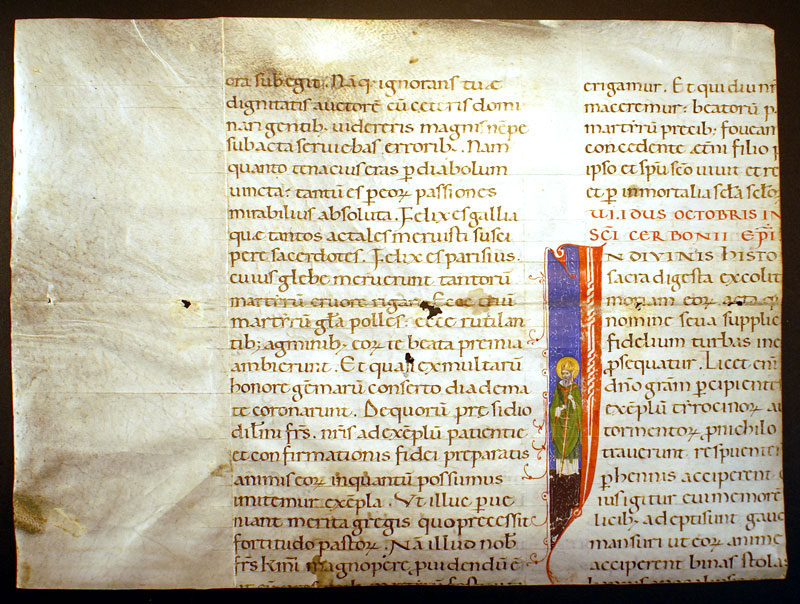 ora subegit. Nāq· ignorans tuæ
dignitatis auctorē cū ceteris domi
nari gentib· videreris magnis nēpe
subacta serviebas errorib·. Nam
quanto tenacius eras p diabolum
vincta· tantū es p eoꝝ passiones
mirabilius absoluta. Felix es gallia
quæ tantos ac tales meruisti susci
pere sacerdotes. Felix es parisius.
cuius glebe meruerunt tantorū
martyrū cruore rigari. Ecce
martyrū gla polles· ecce rutilan
tib; agminib· eoꝝ te beata premia
ambierunt. Et quasi exmultarū
honore gēmarū conserto diadema
te coronarunt. De quorū presidio
dilīni frs. nris ad exēplū patientie
et confirmationis fidei preparatis
animis eoꝝ inquantū possumus
imitemur exēpla. Ut illuc pue
niant merita gregis quo precessit
fortitudo pastoꝝ. Nā illud nob
frs kmi magnopere puidendū ē
erigamur. Et qui diu
maceremur· beatorū p
martyrū precib; foveam
concedente etni filio
ipso et spu sco vivit et re
et p inmortalia scla
VI. IDUS OCTOBRIS IN
SCI CERBONII EPI
IN DIVINIS HISTO
sacra digesta excolit
moriam eoꝝ
nomine seu a supplic
fidelium turbas inc
psequatur. Licet eni
dno gram percipiente
exēplū tyrocinoꝝ au
tormentoꝝ pnichilo
traverunt. respuent
phennis acciperent
ius igitur cui memore
licib· adeptisunt gau
mansuri ut eoꝝ anime
acciperent binas stolas